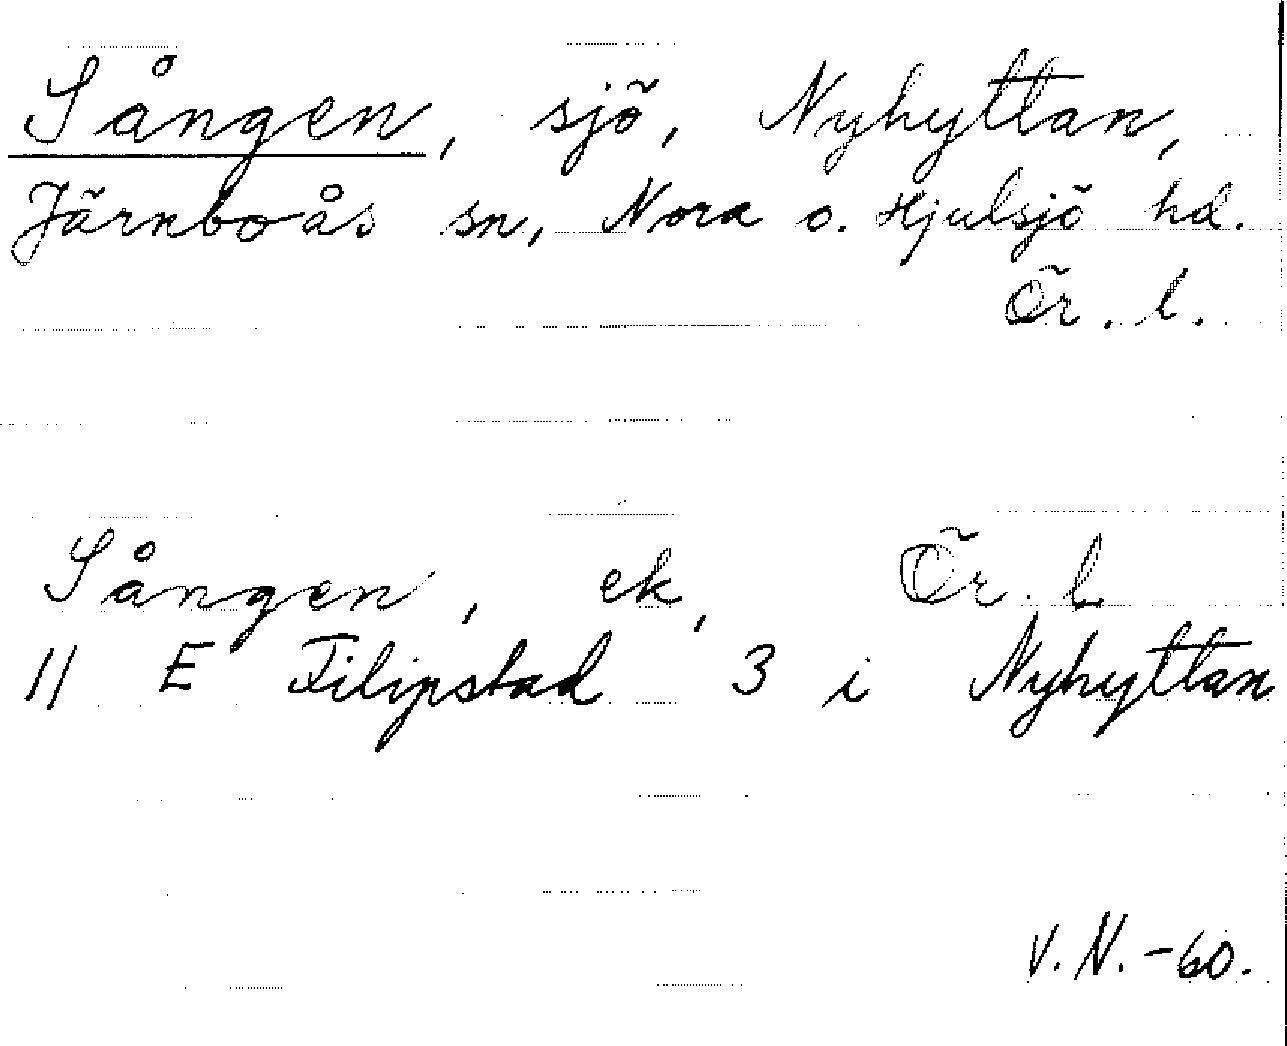 Sången, sjö, Nyhyttan,
Järnboås sn, Nora o. Hjulsjö hd.
Ör. l.
Sången, ek, Ör. l
11 E Filipstad 3 i Nyhyttan
V.N.-60.